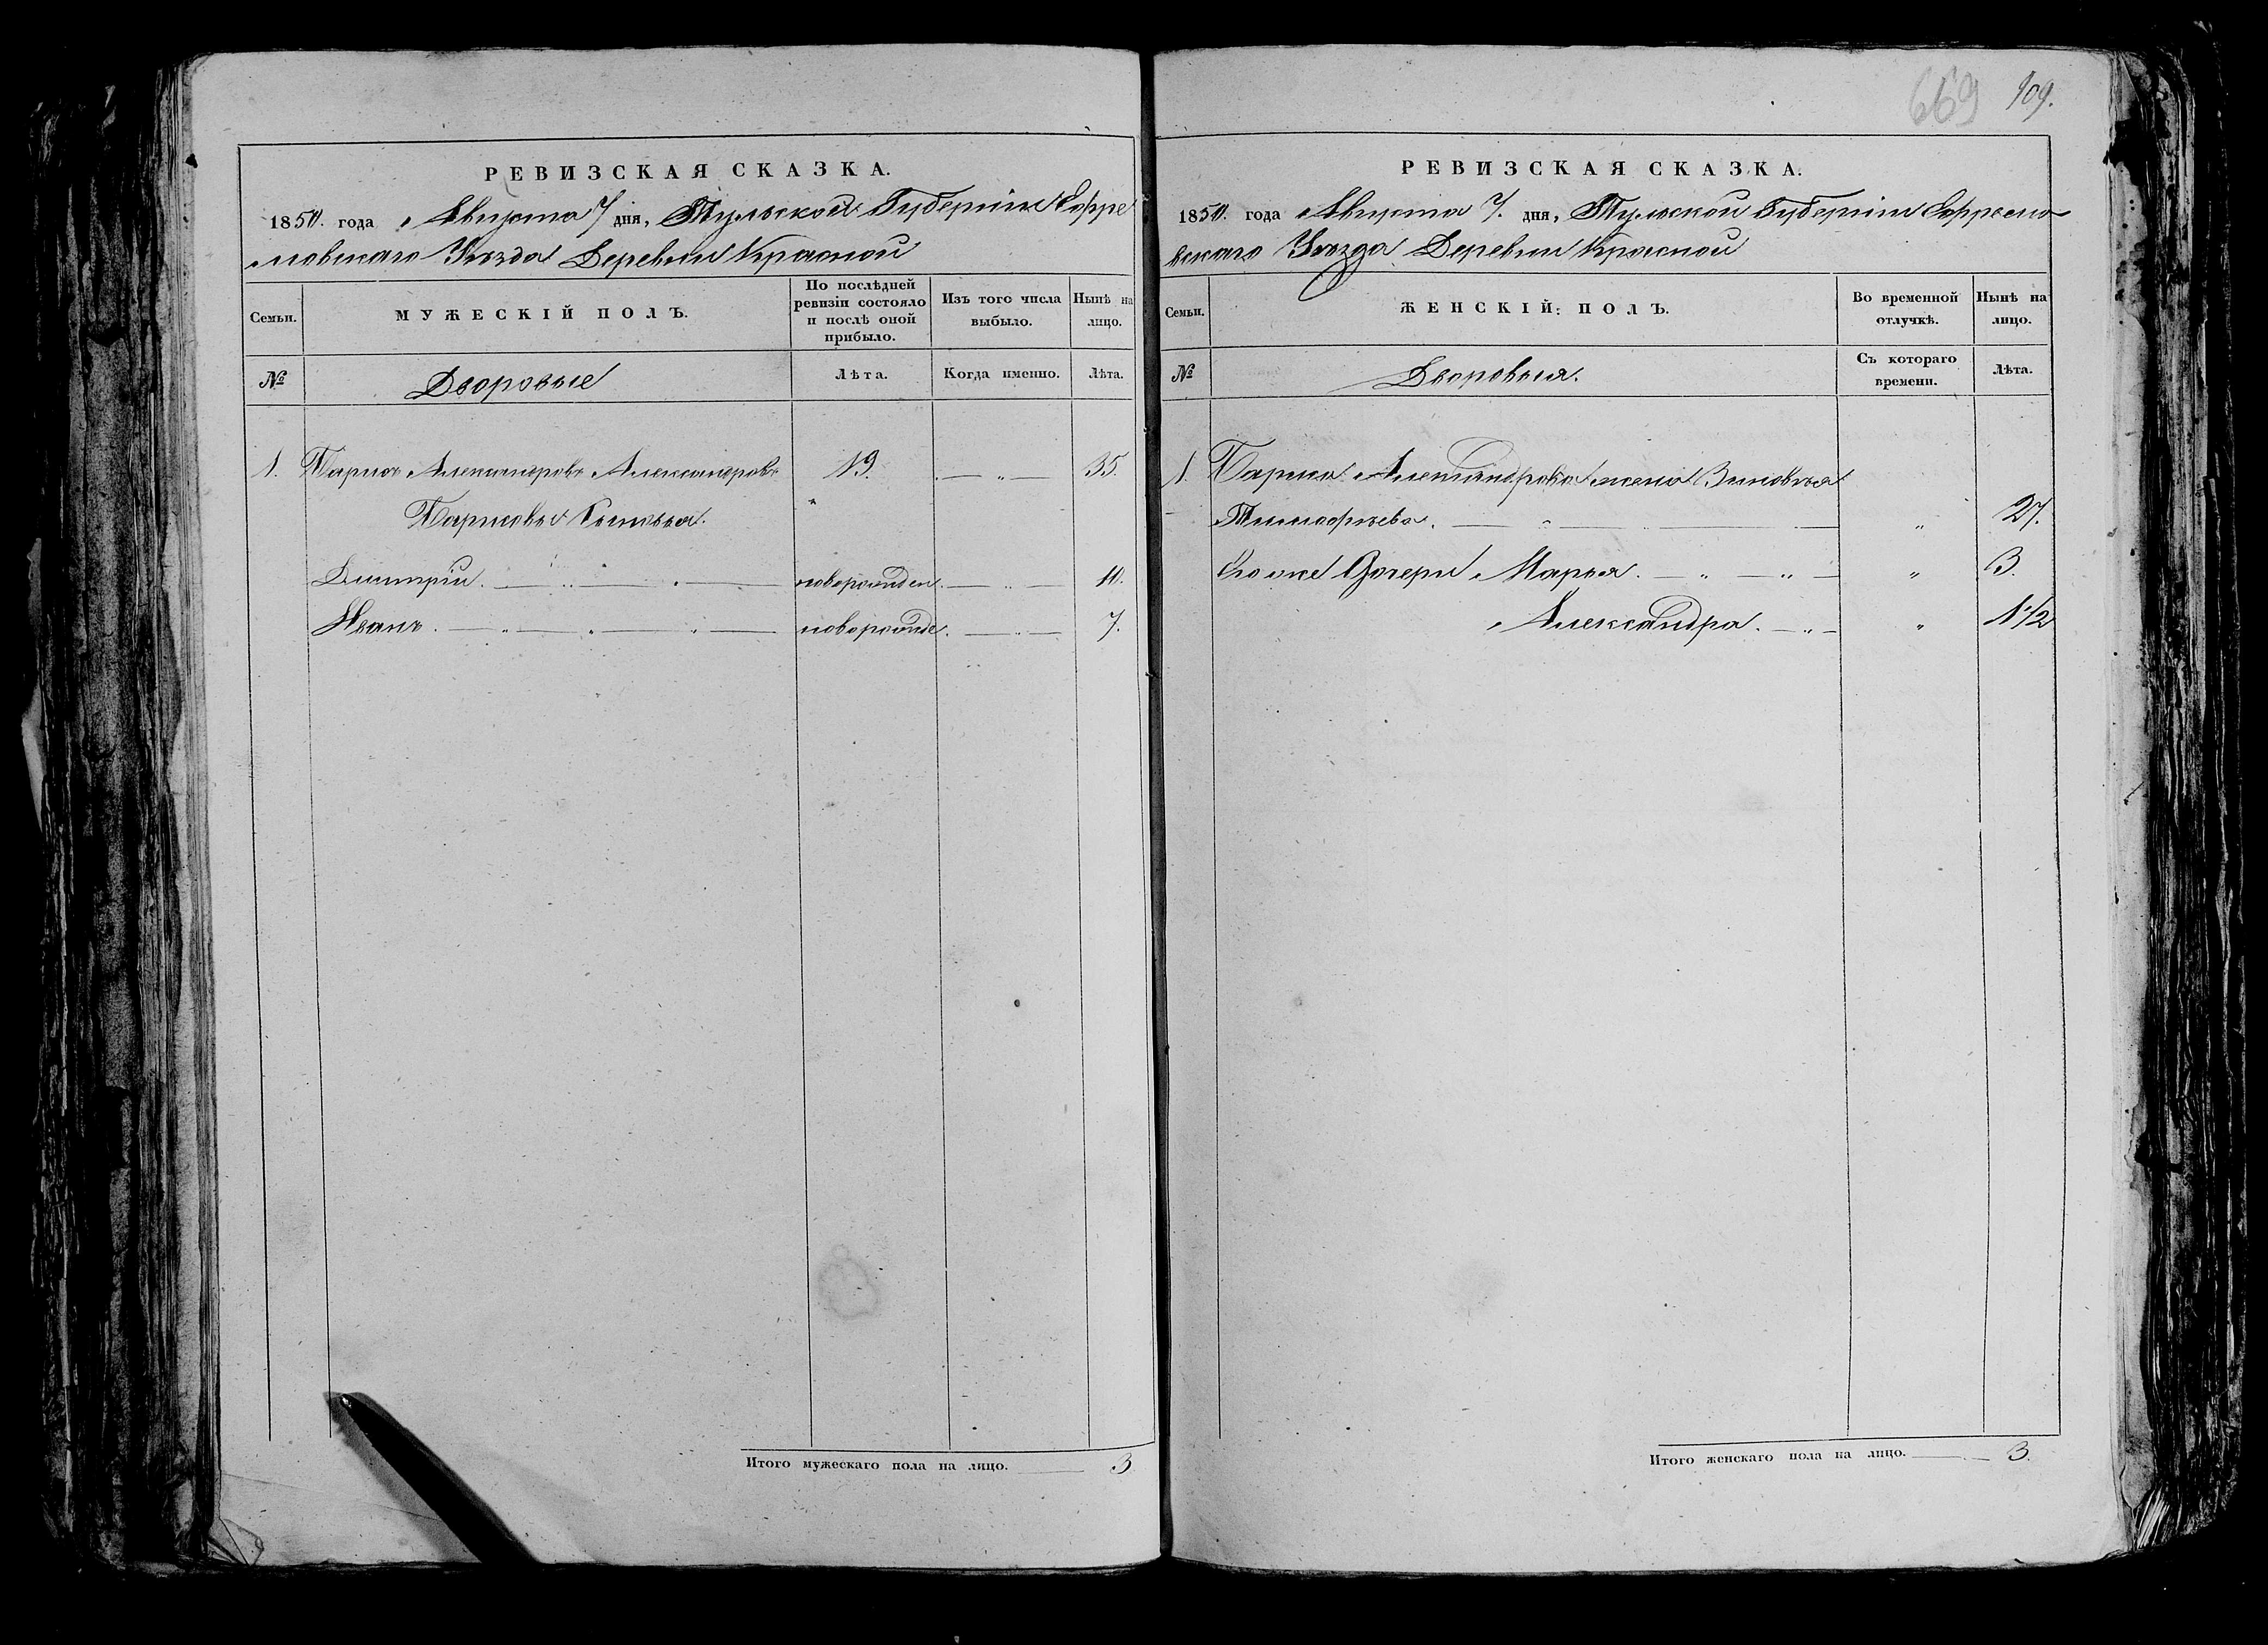 РЕВИЗСКАЯ СКАЗКА.
1850. года Августа 7 дня, Тульской Губерніи Ефре
мовскаго Уѣзда Деревни Красной
Семьи.
МУЖЕСКІЙ ПОЛЪ.
По послѣдней ревизіи состояло и послѣ оной прибыло.
Изъ того числа выбыло.
Нынѣ на лицо.
№
Дворовые
Лѣта.
Когда именно.
Лѣта.
1. Александровъ 19. — „ — 35.
Сыновья.
Дмитрій. — „ — „ — новорожден. — „ — 10.
Иванъ. — „ — „ — „ — новорожде. — „ — 7.
Итого мужескаго пола на лицо. — 3
669 109.
РЕВИЗСКАЯ СКАЗКА.
1850. года Августа 7. дня, Тульской Губерніи Ефремо
вскаго Уѣзда Деревни Красной
Семьи.
ЖЕНСКІЙ ПОЛЪ.
Во временной отлучкѣ.
Нынѣ на лицо.
№
Дворовыя.
Съ котораго времени.
Лѣта.
1. Александрова жена Зиновья
Тимофѣева. — „ — „ 27.
Его же Дочери Марья. — „ — „ — „ 3.
Александра. — „ — „ 1 1/2
Итого женскаго пола на лицо. — 3.